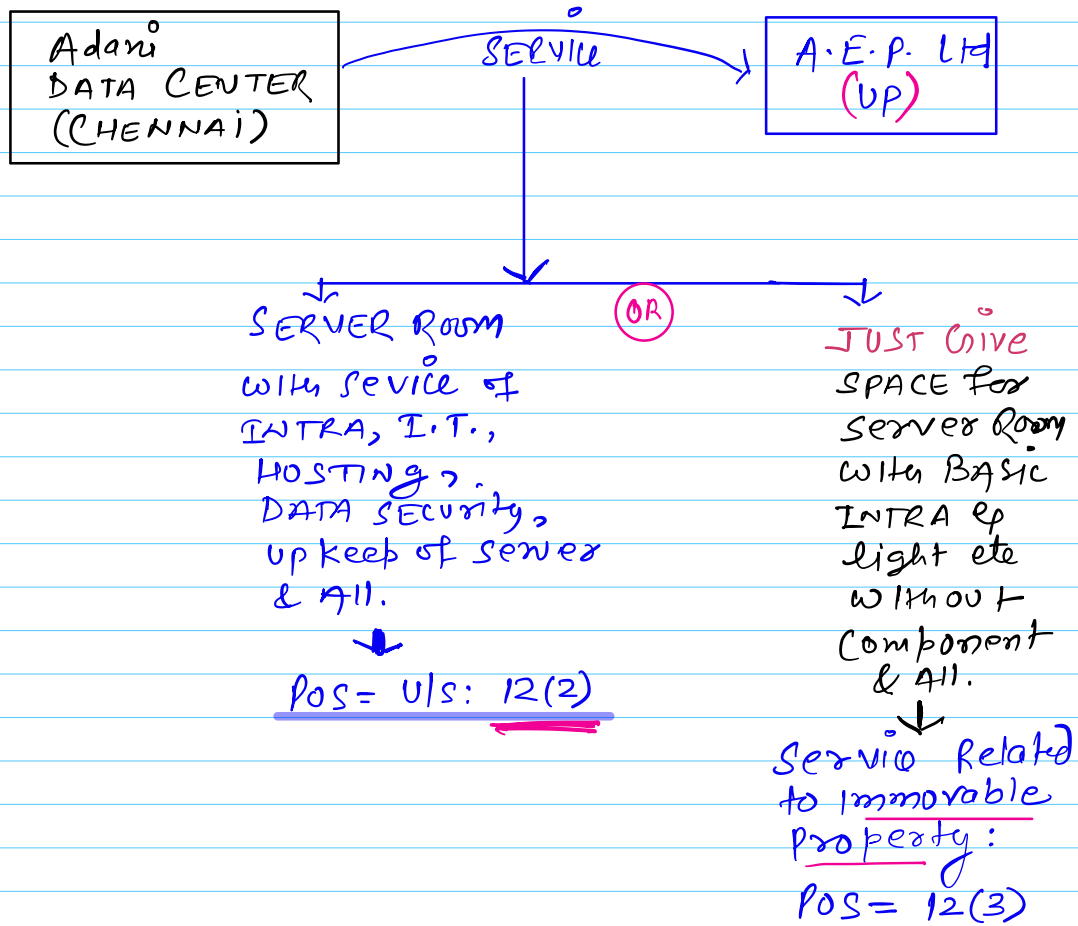 Adani
DATA CENTER
(CHENNAI)
SERVICE
A.E.P. Ltd
(UP)
OR
SERVER ROOM
with sevice of
INTRA, I.T.,
HOSTING,
DATA SECURITY,
upkeep of server
& All.
POS = U/S: 12(2)
JUST Give
SPACE for
server Room
with BASIC
INTRA
light etc
without
Component
& All.
Service Related
to Immovable
Property:
POS = 12(3)